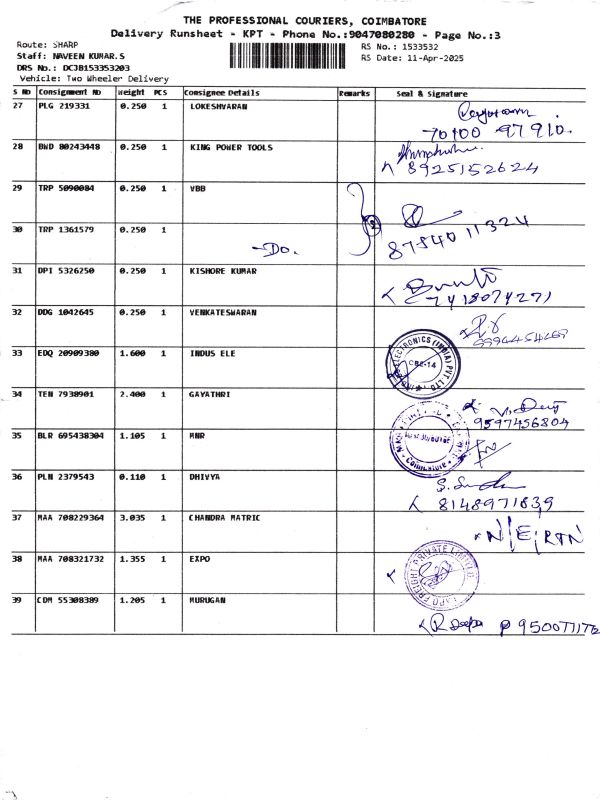 THE PROFESSIONAL COURIERS, COIMBATORE
Delivery Runsheet - KPT - Phone No.:9047080280 - Page No.:3
Route: SHARP
RS No.: 1533532
Staff: NAVEEN KUMAR.S
RS Date: 11-Apr-2025
DRS No.: DCJB153353203
Vehicle: Two Wheeler Delivery
S No Consignment No Weight PCS Consignee Details Remarks Seal & Signature
27 PLG 219331 0.250 1 LOKESHVARAN
70100 97910.
28 BWD 80243448 0.250 1 KING POWER TOOLS
8925152624
29 TRP 5090084 0.250 1 VBB
30 TRP 1361579 0.250 1
-Do.
8754011324
31 DPI 5326250 0.250 1 KISHORE KUMAR
7418074271
32 DDG 1042645 0.250 1 VENKATESWARAN
33 EDQ 20909380 1.600 1 INDUS ELE
ELECTRONICS (INDIA) PVT LTD
CBE-14
34 TEN 7938901 2.400 1 GAYATHRI
9597456804
35 BLR 695438304 1.105 1 MNR
Coimbatore
36 PLN 2379543 0.110 1 DHIVYA
8148971839
37 MAA 708229364 3.035 1 CHANDRA MATRIC
N/E/RTN
38 MAA 708321732 1.355 1 EXPO
EXPO FREIGHT PRIVATE LIMITED
39 CDM 55308389 1.205 1 MURUGAN
R Deepa